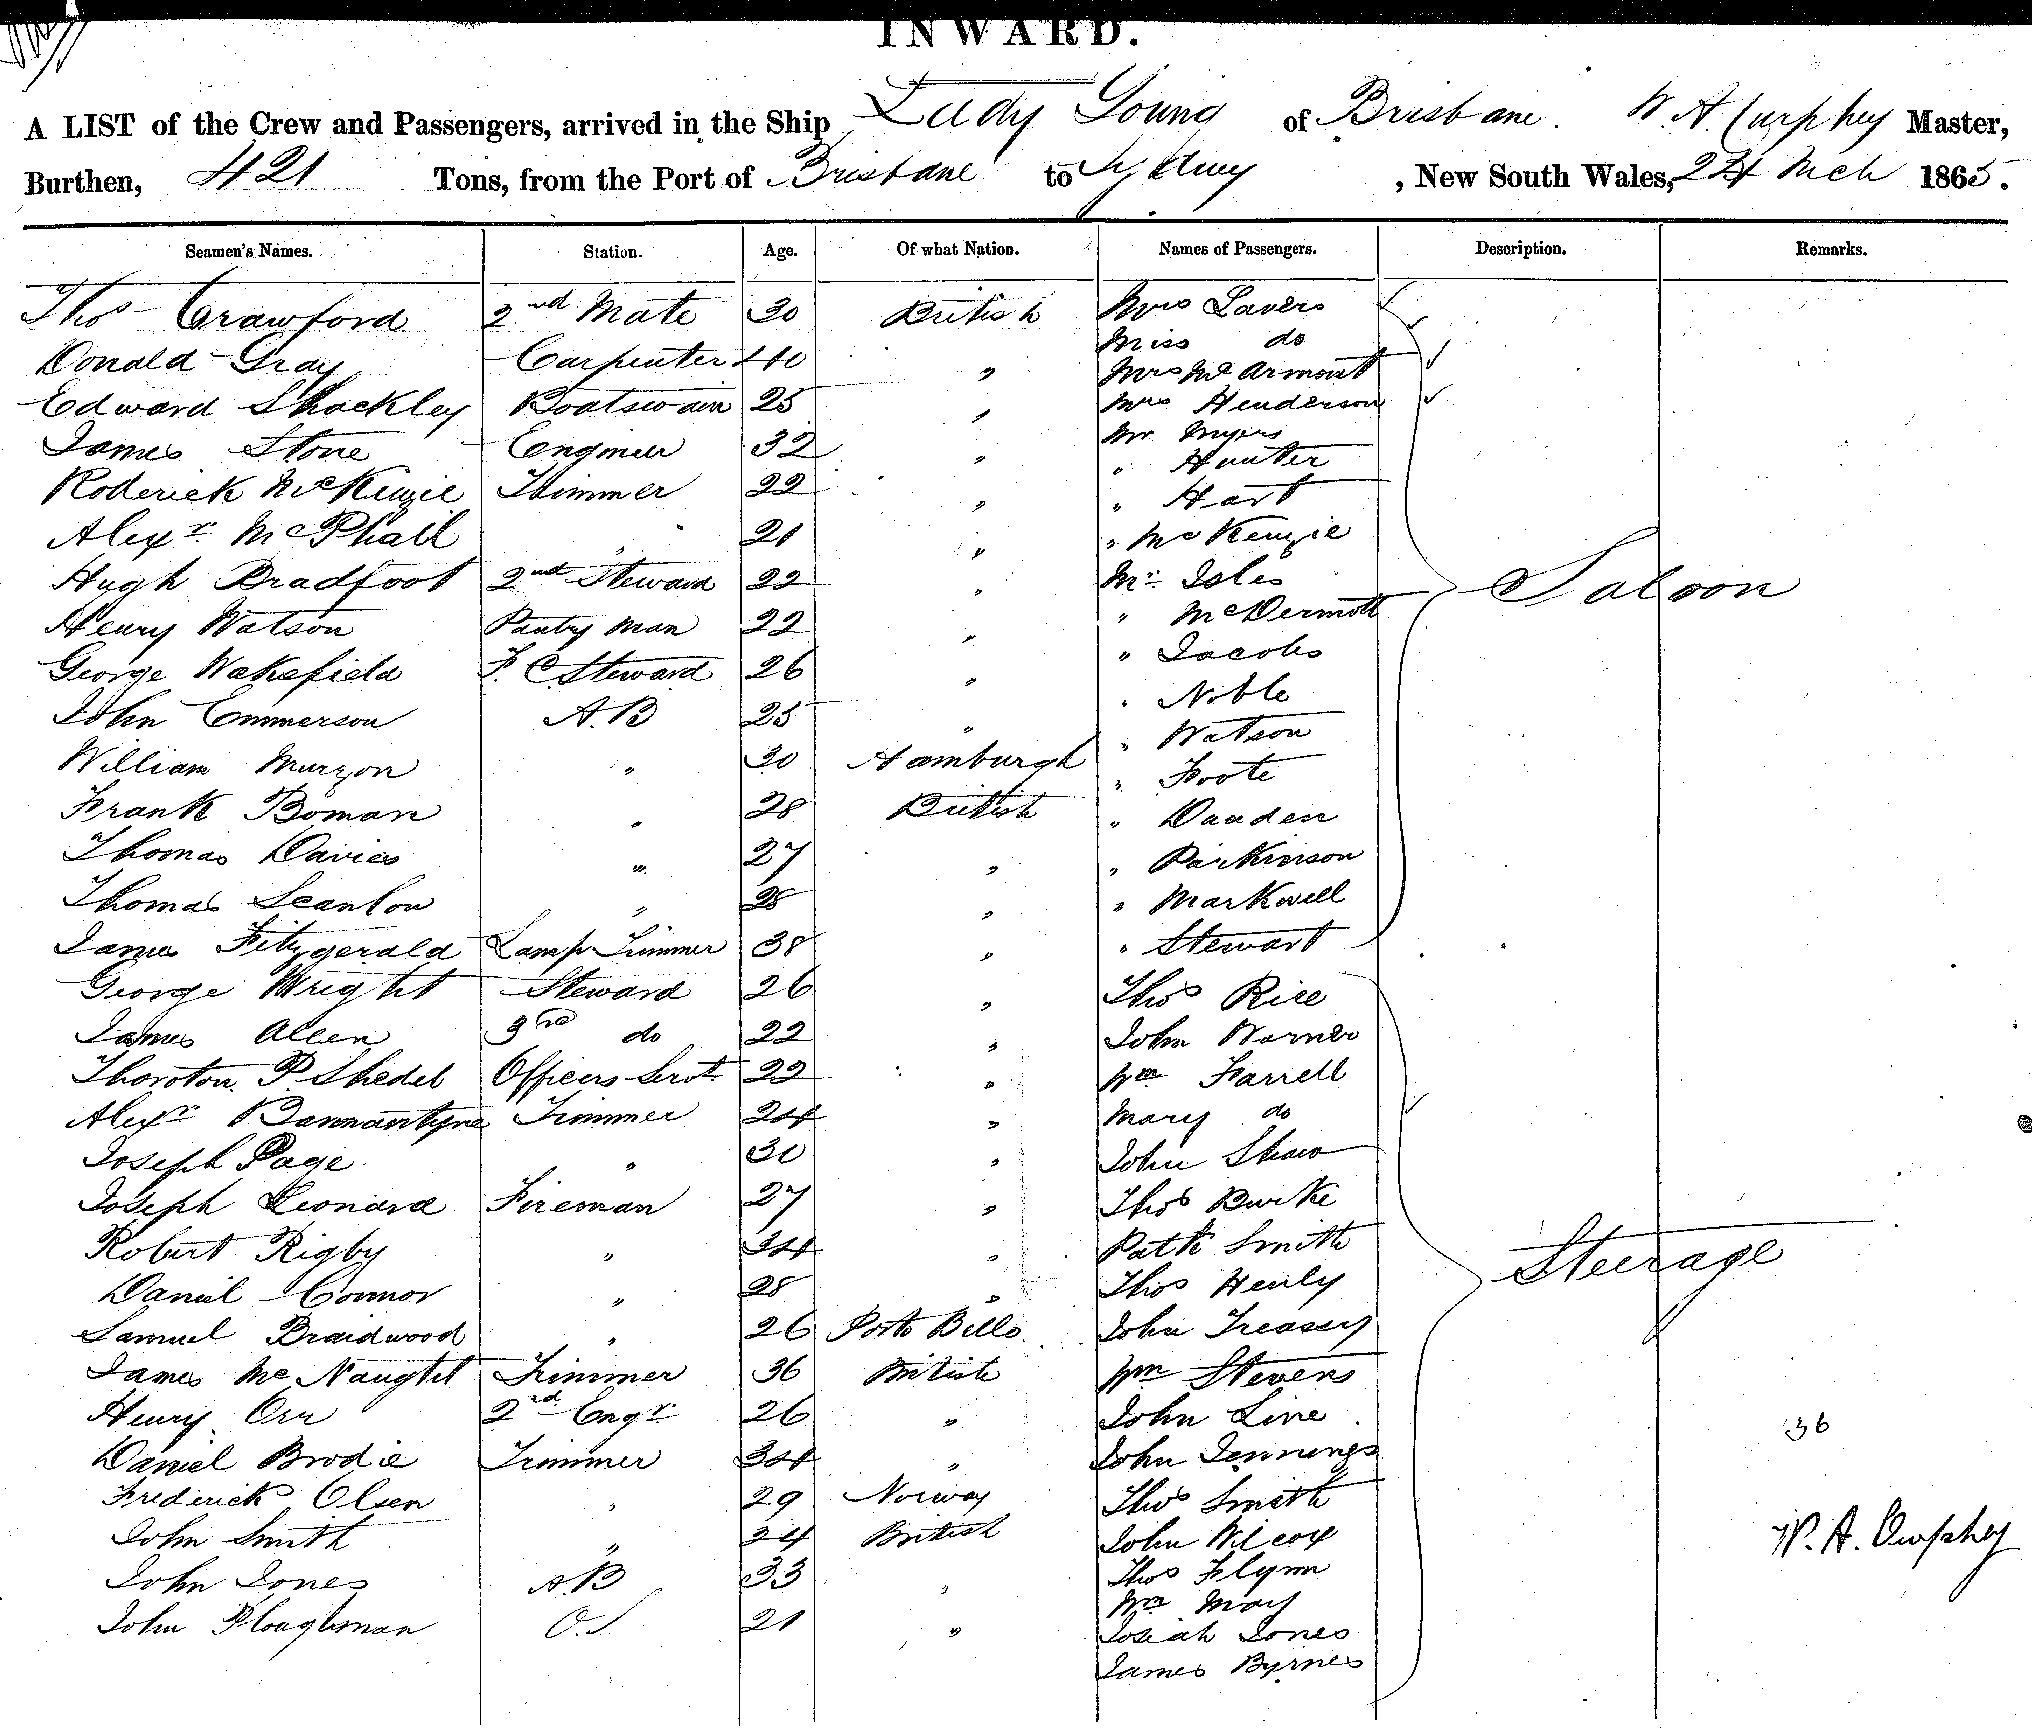 INWARD.
A LIST of the Crew and Passengers, arrived in the Ship Lady Young of Brisbane. W. A. Curphey Master,
Burthen, 421 Tons, from the Port of Brisbane to Sydney, New South Wales, 24 Mch 1865.
Seamen's Names. Station. Age. Of what Nation. Names of Passengers. Description. Remarks.
Thos Crawford 2nd Mate 30 British Mrs Lavers
Miss do
Donald Gray Carpenter 40 " Mrs Mc Armont
Edward Shackley Boatswain 25 " Mrs Henderson
Mr Myers
James Stone Engineer 32 " " Hunter
Roderick McKenzie Trimmer 22 " " Hart
Alexr McPhail " 21 " " McKenzie
Hugh Bradfoot 2nd Steward 22 " Mr Isles Saloon
" McDermott
Henry Watson Pantry Man 22 " " Jacobs
George Wakefield F. C Steward 26 " " Noble
John Emmerson A.B 25 " " Watson
William Murzon " 30 Hamburgh " Foote
Frank Boman " 28 British " Dauden
Thomas Davies " 27 " " Parkinson
Thomas Scanlon " 28 " " Markwell
James Fitzgerald Lamp Trimmer 38 " " Stewart
George Wright Steward 26 " Thos Rice
James Allen 3rd do 22 " John Warner
Thoroton P Shedel Officers Servt 22 " Wm Farrell
Alexr Bannantyne Trimmer 24 " Mary do
Joseph Page " 30 " John Shaw
Joseph Leonard Fireman 27 " Thos Burke
Robert Rigby " 34 " Patk Smith Steerage
Daniel Connor " 28 " Thos Henly
Samuel Braidwood " 26 Porto Bello John Treassy
James McNaught Trimmer 36 British Wm Stevens
Henry Orr 2nd Engr 26 " John Line 36
Daniel Brodie Trimmer 34 " John Jennings
Frederick Olsen " 29 Norway Thos Smith
John Smith " 24 British John Wilcox W. A. Curphey
John Jones A.B 33 " Thos Flynn
Wm May
John Ploughman O.S 21 " Josiah Jones
James Byrnes